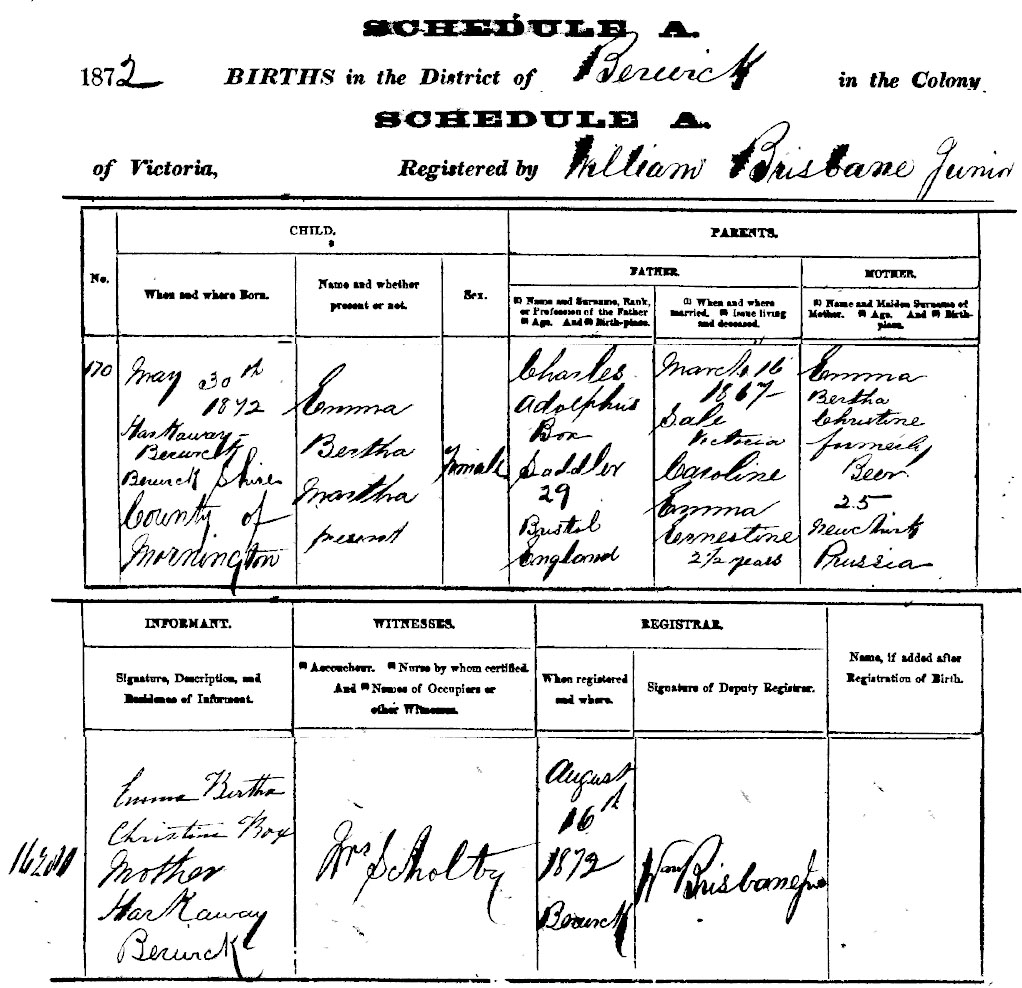 SCHEDULE A.
1872 BIRTHS in the District of Berwick in the Colony
SCHEDULE A.
of Victoria, Registered by William Brisbane Junior
CHILD.
PARENTS.
No.
When and where Born.
Name and whether
present or not.
Sex.
FATHER.
MOTHER.
(1) Name and Surname, Rank,
or Profession of the Father
(2) Age. And (3) Birth-place.
(1) When and where
married. (2) Issue living
and deceased.
(1) Name and Maiden Surname of
Mother. (2) Age. And (3) Birth-
place.
170
May 30th
1872
Harkaway
Berwick
Berwick Shire
County of
Mornington
Emma
Bertha
Martha
present
Female
Charles
Adolphus
Box
Saddler
29
Bristol
England
March 16
1867
Sale
Victoria
Caroline
Emma
Ernestine
2 1/2 years
Emma
Bertha
Christine
formerly
Beer
25
Prussia
INFORMANT.
WITNESSES.
REGISTRAR.
Signature, Description, and
Residence of Informant.
(1) Accoucheur. (2) Nurse by whom certified.
And (3) Names of Occupiers or
other Witnesses.
When registered
and where.
Signature of Deputy Registrar.
Name, if added after
Registration of Birth.
Emma Bertha
Christine Box
Mother
Harkaway
Berwick
Mrs Scholty
August
16th
1872
Berwick
Wm Brisbane Jnr